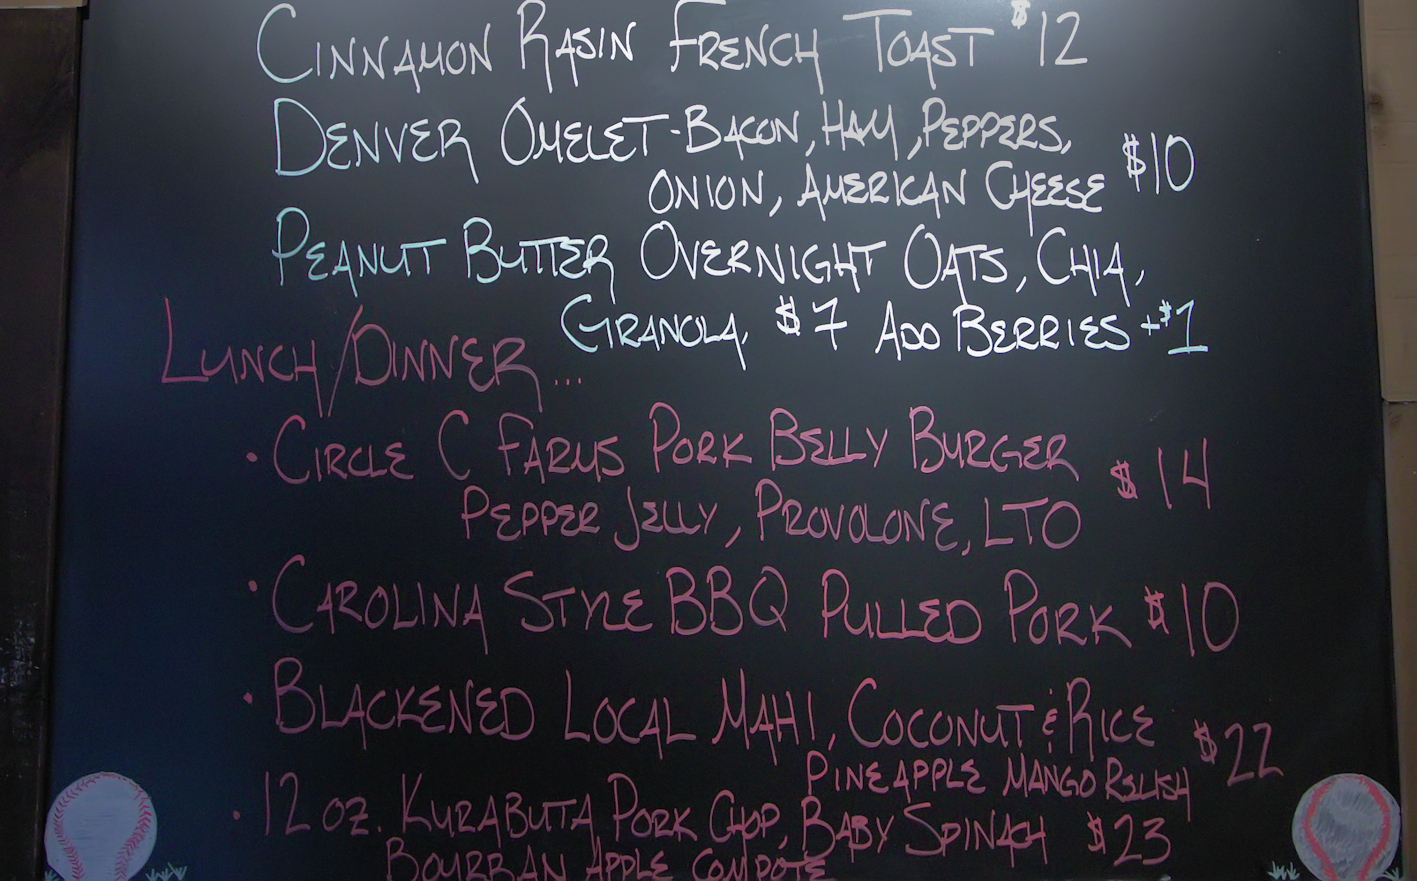 CINNAMON RASIN FRENCH TOAST $12
DENVER OMELET - BACON, HAM, PEPPERS,
ONION, AMERICAN CHEESE $10
PEANUT BUTTER OVERNIGHT OATS, CHIA,
GRANOLA, $7 ADD BERRIES +$1
LUNCH/DINNER...
• CIRCLE C FARMS PORK BELLY BURGER
PEPPER JELLY, PROVOLONE, LTO $14
• CAROLINA STYLE BBQ PULLED PORK $10
• BLACKENED LOCAL MAHI, COCONUT & RICE
PINEAPPLE MANGO RELISH $22
• 12 OZ. KURABUTA PORK CHOP, BABY SPINACH $23
BOURBAN APPLE COMPOTE